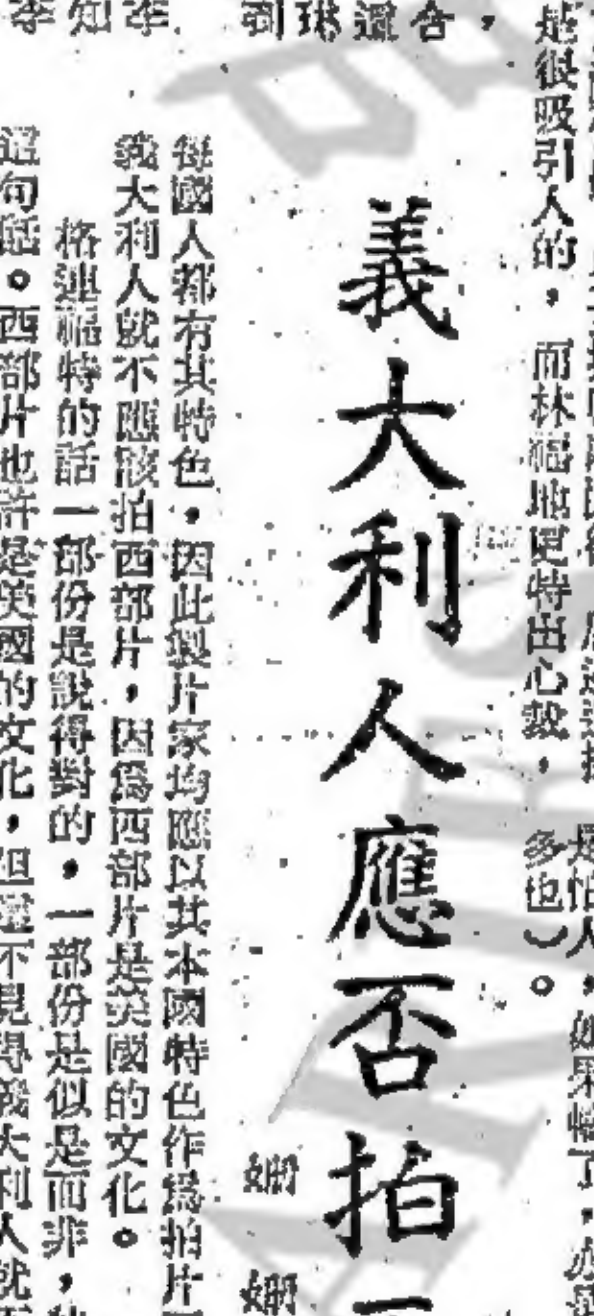 是很吸引人的，而林福地更特出心裁，
多也）。
是怕人，如果幅了，
義大利人應否拍
姍姍
每國人都有其特色，因此製片家均應以其本國特色作爲拍片
義大利人就不應該拍西部片，因爲西部片是美國的文化。
格連福特的話一部份是說得對的，一部份是似是而非，
這句話。西部片也許是美國的文化，但還不見得義大利人就